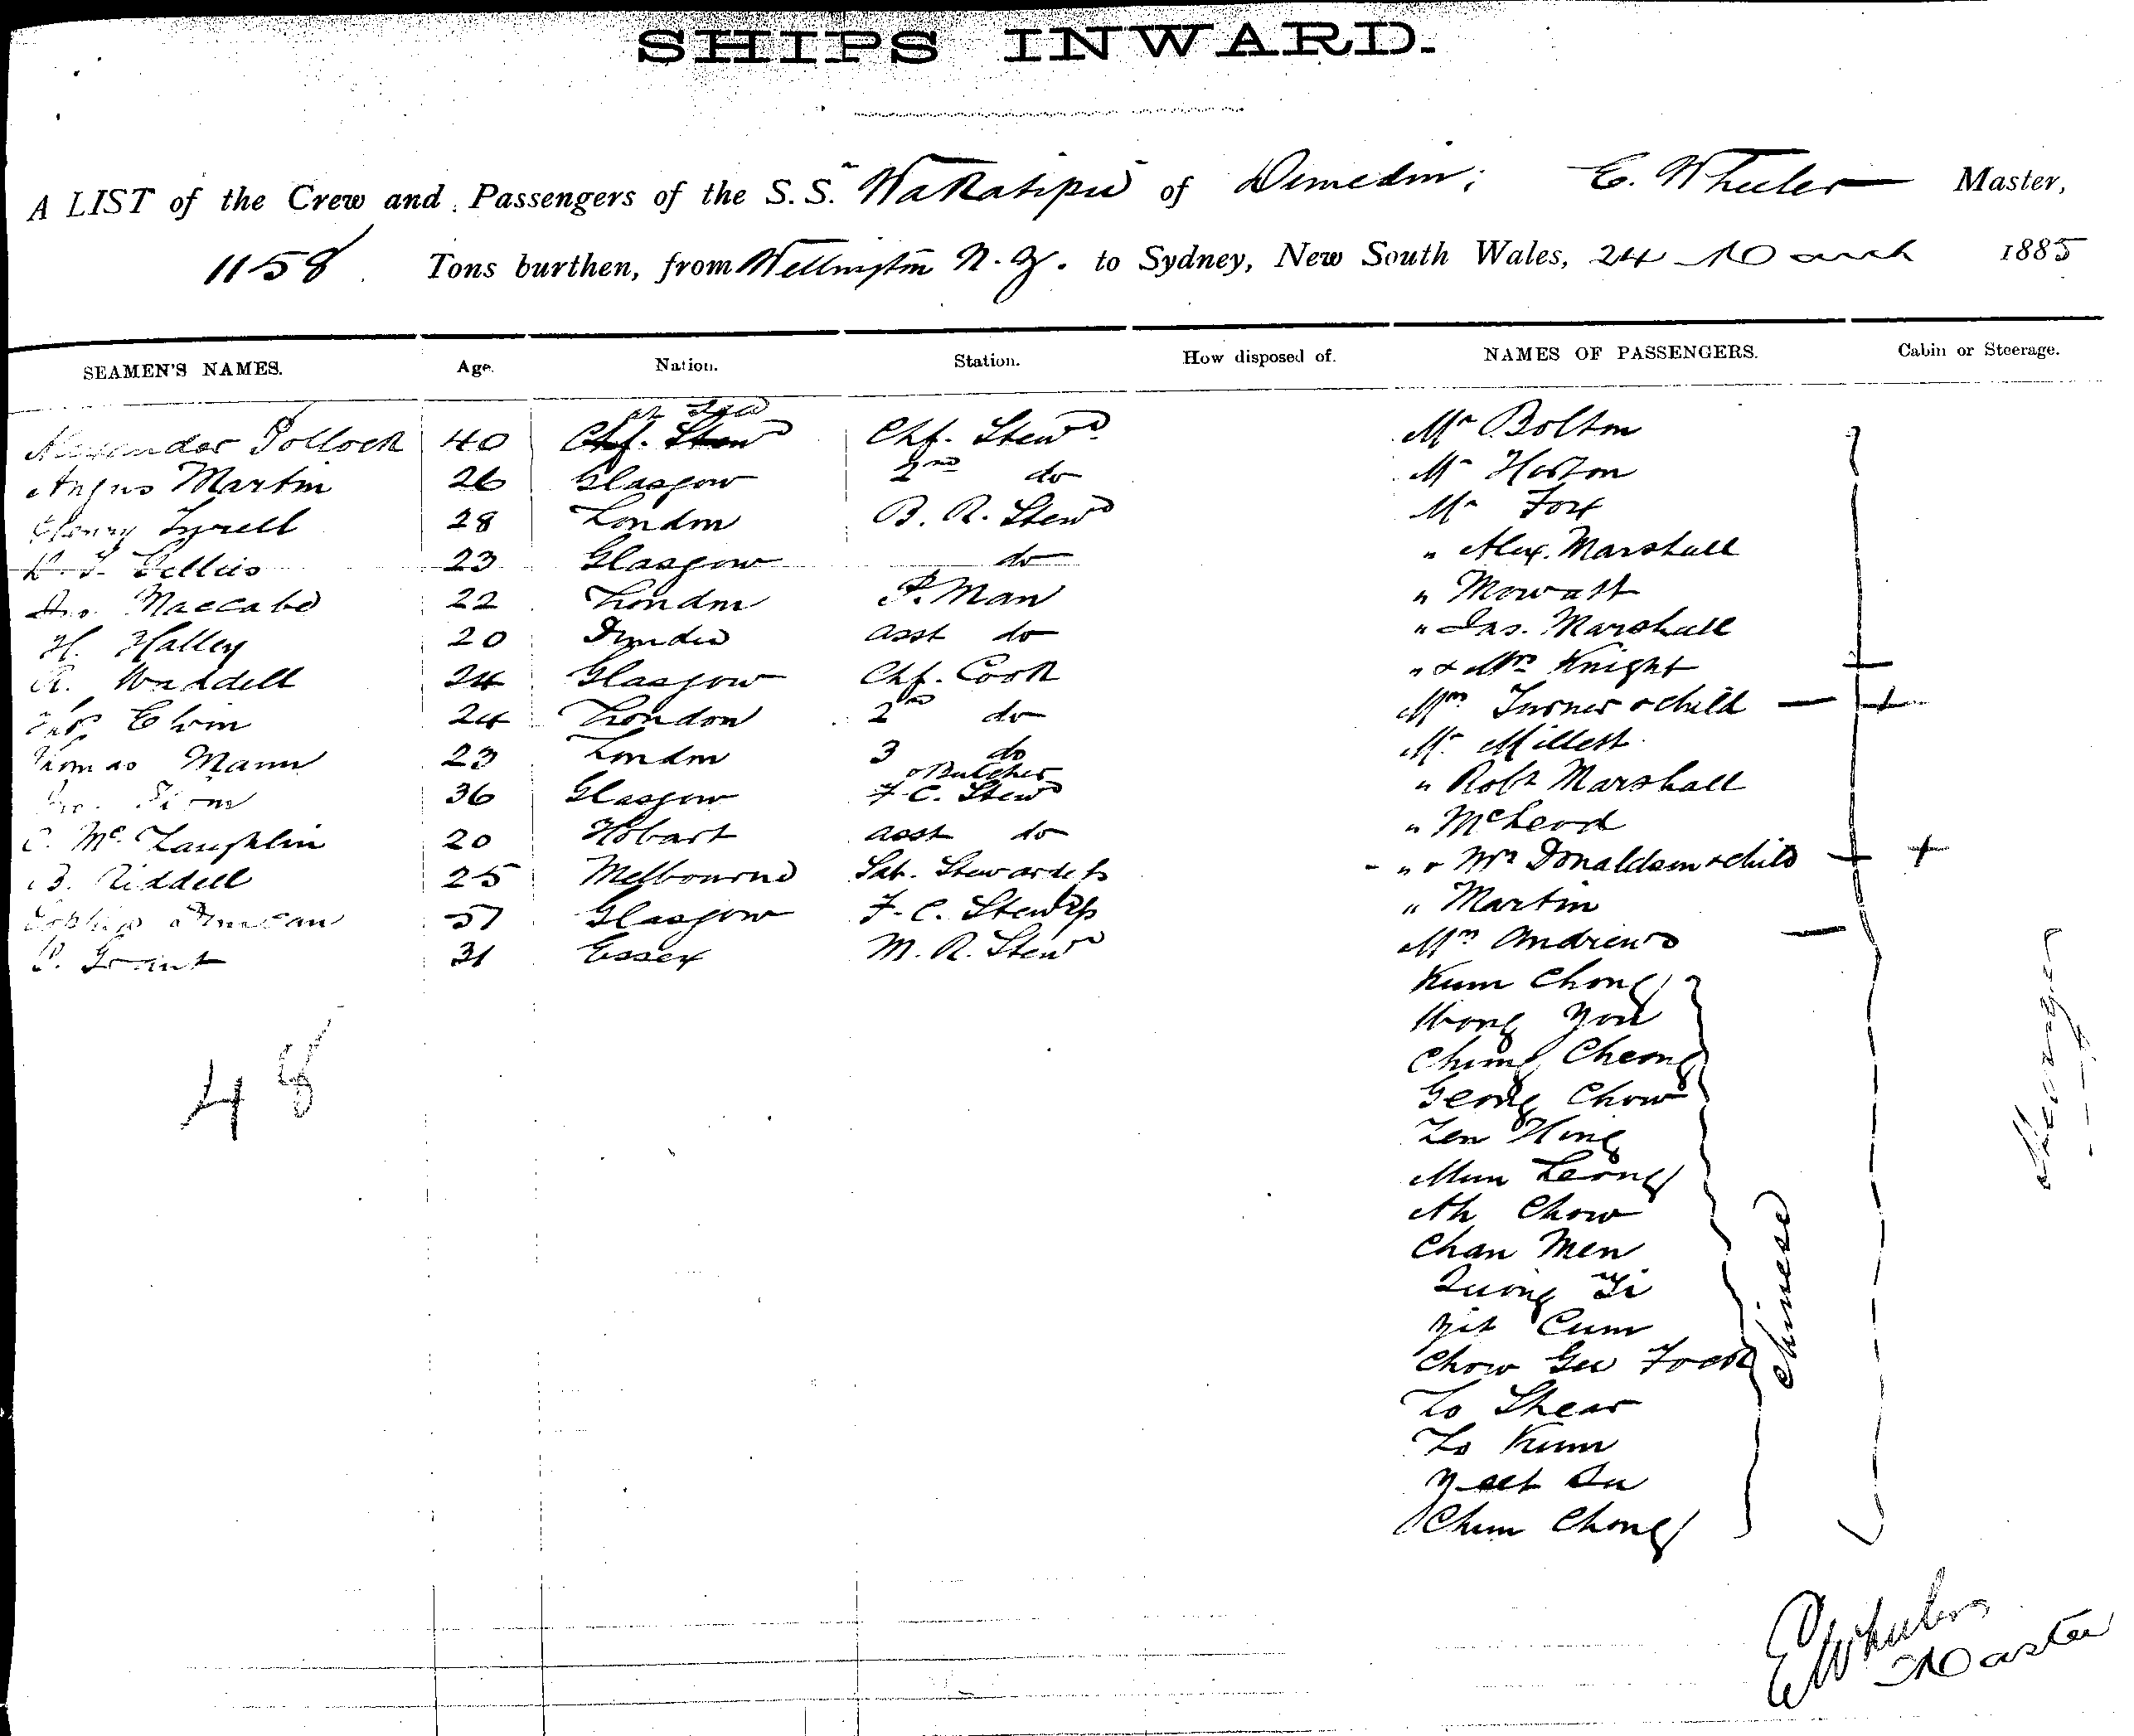 SHIPS INWARD.
A LIST of the Crew and Passengers of the S.S. "Wakatipu" of Dunedin; E. Wheeler Master,
1158 Tons burthen, from Wellington N.Z. to Sydney, New South Wales, 24 March 1885
SEAMEN'S NAMES. Age. Nation. Station. How disposed of. NAMES OF PASSENGERS. Cabin or Steerage.
at sea
Alexander Pollock 40 Chf. Stewd Chf. Stewd. Mr Bolton
Angus Martin 26 Glasgow 2nd do Mr Horton
Henry Tyrell 28 London B. R. Stewd Mr Fox
23 Glasgow do " Alex. Marshall
Jno. Maccabe 22 London P. Man " Mowatt
H. Halley 20 Dundee asst do " Jas. Marshall
R. Waddell 24 Glasgow Chf. Cook " & Mrs Knight
Elvin 24 London 2nd do Mrs Turner & child
Thomas Mann 23 London 3 do Mr Millett
& Butcher
36 Glasgow F. C. Stewd " Robt Marshall
C. McLaughlin 20 Hobart asst do " McLeod
B. Riddell 25 Melbourne Sal. Stewardess " & Mrs Donaldson & child
Sophia Duncan 51 Glasgow F. C. Stewdss " Martin
P. Grant 31 Essex M. R. Stewd Mrs Andrews
Kum Chong
Wong You
Ching Cheong
Geong Chow
Len Hing
Mun Leong
Ah Chow
Chan Men
Quong Gi
Yit Cum
Chow Gee Fook
Lo Shear
Lo Kum
Yeet Su
Chum Chong
Chinese
Steerage
48
E Wheeler
Master